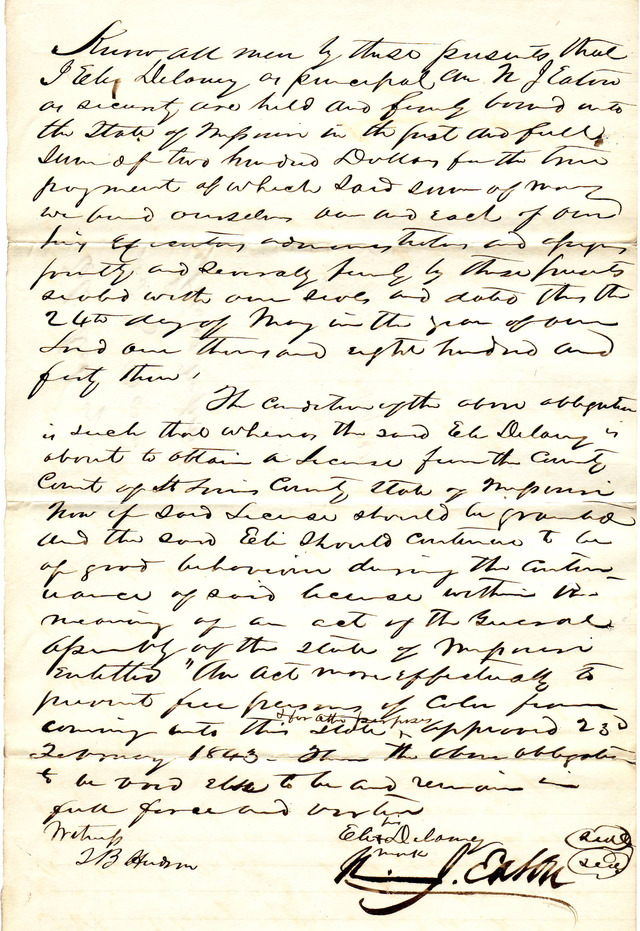 Know all men by these presents that
I Eli Delaney as principal an N J Eaton
as security are held and firmly bound unto
the State of Missouri in the just and full
sum of two hundred Dollars for the true
payment of which said sum of money
we bind ourselves our and each of our
heirs Executors administrators and assigns
jointly and severally firmly by these presents
sealed with our seals and dated this the
24th day of May in the year of our
Lord one thousand eight hundred and
forty three.
The condition of the above obligation
is such that whereas the said Eli Delaney is
about to obtain a License from the County
Court of St Louis County State of Missouri
Now if said License should be granted
and the said Eli should continue to be
of good behaviour during the contin-
uance of said license within the
meaning of an act of the General
Assembly of the State of Missouri
Entitled "An Act more effectually to
prevent free persons of Color from
coming into this State & for other purposes approved 23d
February 1843 - Then the above obligation
to be void else to be and remain in
full force and virtue
Witness
J B Hudson
Eli his x mark Delaney seal
N. J. Eaton seal